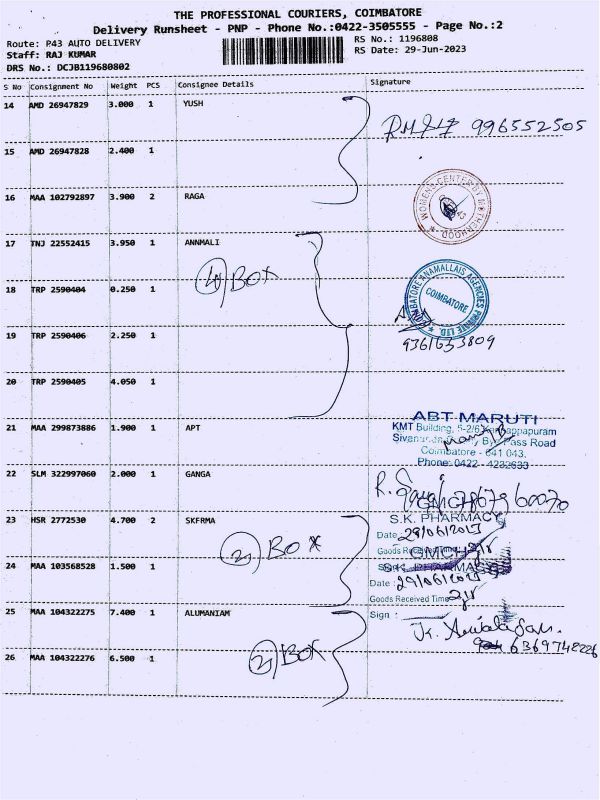 THE PROFESSIONAL COURIERS, COIMBATORE
Delivery Runsheet - PNP - Phone No.:0422-3505555 - Page No.:2
Route: P43 AUTO DELIVERY
RS No.: 1196808
Staff: RAJ KUMAR
RS Date: 29-Jun-2023
DRS No.: DCJB119680802
S No Consignment No Weight PCS Consignee Details Signature
14 AMD 26947829 3.000 1 YUSH
996552505
15 AMD 26947828 2.400 1
16 MAA 102792897 3.900 2 RAGA
WOMENS CENTER BY MOTHERHOOD
17 TNJ 22552415 3.950 1 ANNMALI
4 BOX
COIMBATORE ANAMALLAIS AGENCIES PRIVATE LTD.
COIMBATORE
18 TRP 2590404 0.250 1
19 TRP 2590406 2.250 1
9361633809
20 TRP 2590405 4.050 1
ABT MARUTI
21 MAA 299873886 1.900 1 APT
KMT Building, 5-2/6
Pass Road
Coimbatore - 641 043.
Phone: 0422 - 4232633
22 SLM 322997060 2.000 1 GANGA
GMCH
23 HSR 2772530 4.700 2 SKFRMA
S.K. PHARMACY
Date 29/06/2023
2 BOX
Goods Received Time
GMCH
24 MAA 103568528 1.500 1
S.K. PHARMACY
Date : 29/06/2023
Goods Received Time
25 MAA 104322275 7.400 1 ALUMANIAM
Sign :
2 BOX
6369742226
26 MAA 104322276 6.500 1